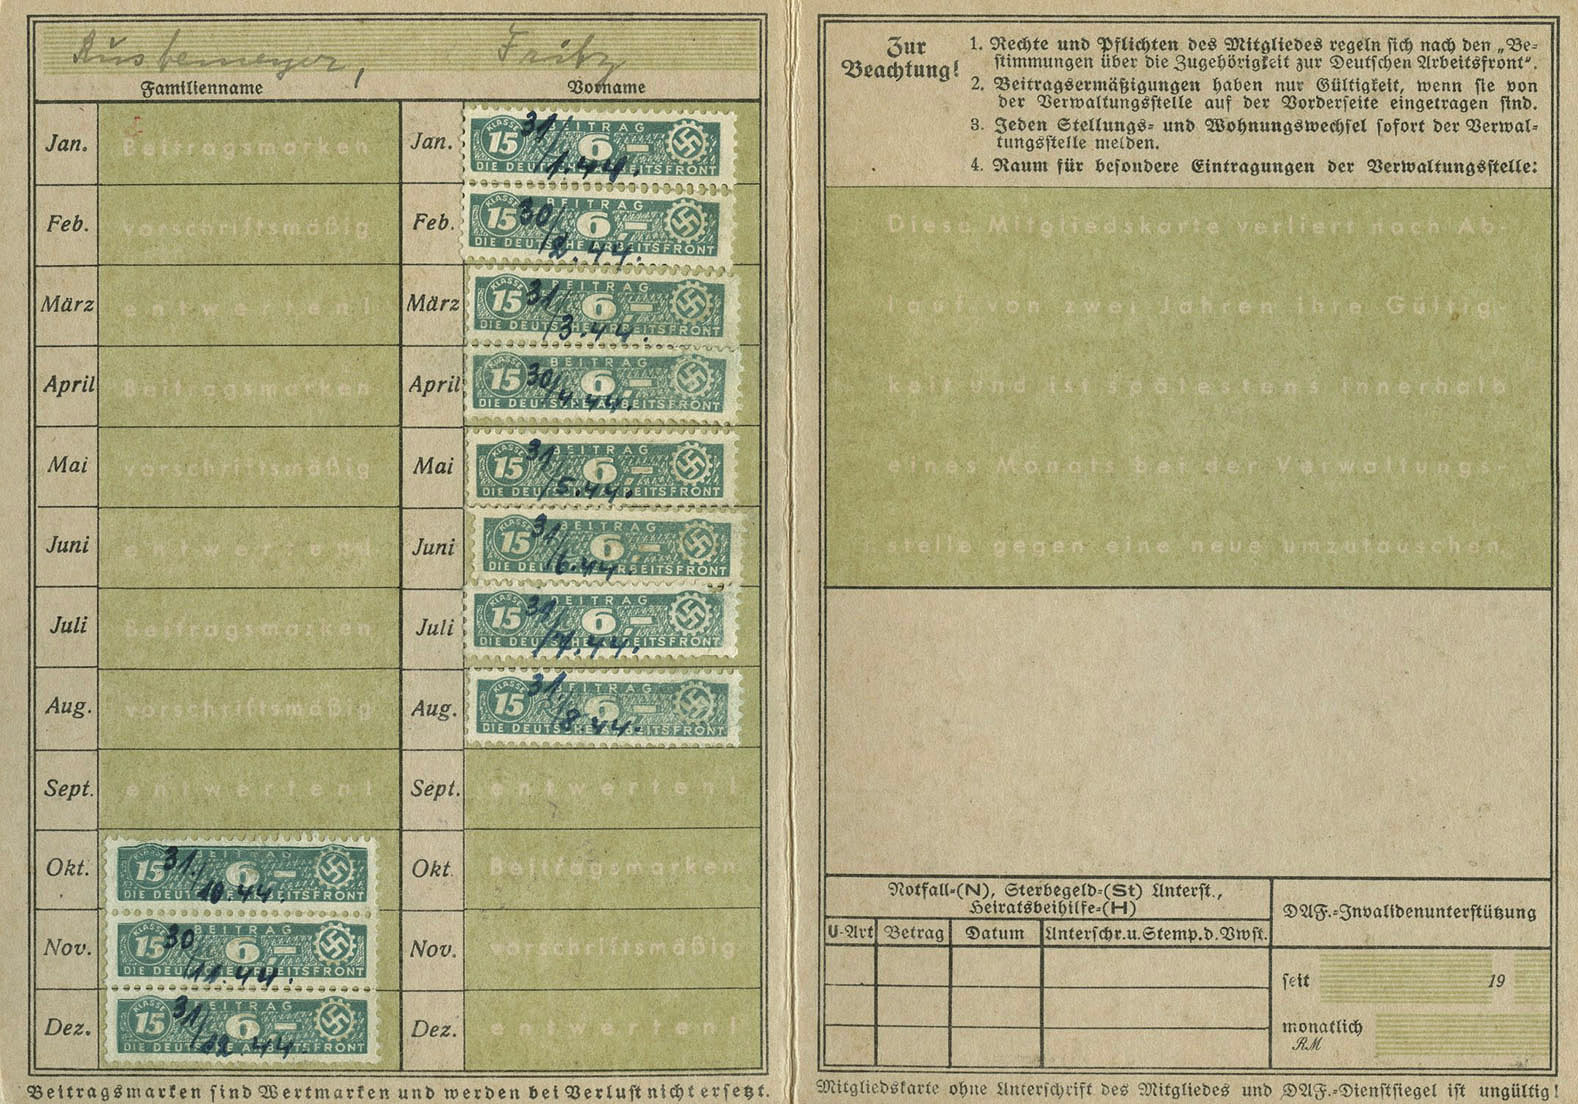 Fritz
Familienname Vorname
Jan. Beitragsmarken
Feb. vorschriftsmäßig
März entwerten!
April Beitragsmarken
Mai vorschriftsmäßig
Juni entwerten!
Juli Beitragsmarken
Aug. vorschriftsmäßig
Sept. entwerten!
Okt. 15 BEITRAG 6,—
DIE DEUTSCHE ARBEITSFRONT
31./10.44.
Nov. KLASSE 15 BEITRAG 6,—
DIE DEUTSCHE ARBEITSFRONT
30/11.44.
Dez. KLASSE 15 BEITRAG 6,—
DIE DEUTSCHE ARBEITSFRONT
31/12 44.
Jan. KLASSE 15 BEITRAG 6,—
DIE DEUTSCHE ARBEITSFRONT
31/1.44.
Feb. KLASSE 15 BEITRAG 6,—
DIE DEUTSCHE ARBEITSFRONT
30/2.44.
März KLASSE 15 BEITRAG 6,—
DIE DEUTSCHE ARBEITSFRONT
31/3.44.
April KLASSE 15 BEITRAG 6,—
DIE DEUTSCHE ARBEITSFRONT
30/4.44.
Mai KLASSE 15 BEITRAG 6,—
DIE DEUTSCHE ARBEITSFRONT
31/5.44.
Juni KLASSE 15 BEITRAG 6,—
DIE DEUTSCHE ARBEITSFRONT
31/6.44.
Juli KLASSE 15 BEITRAG 6,—
DIE DEUTSCHE ARBEITSFRONT
31/7.44.
Aug. KLASSE 15 BEITRAG 6,—
DIE DEUTSCHE ARBEITSFRONT
31/8.44.
Sept. entwerten!
Okt. Beitragsmarken
Nov. vorschriftsmäßig
Dez. entwerten!
Beitragsmarken sind Wertmarken und werden bei Verlust nicht ersetzt.
Zur
Beachtung!
1. Rechte und Pflichten des Mitgliedes regeln sich nach den „Be-
stimmungen über die Zugehörigkeit zur Deutschen Arbeitsfront“.
2. Beitragsermäßigungen haben nur Gültigkeit, wenn sie von
der Verwaltungsstelle auf der Vorderseite eingetragen sind.
3. Jeden Stellungs- und Wohnungswechsel sofort der Verwal-
tungsstelle melden.
4. Raum für besondere Eintragungen der Verwaltungsstelle:
Diese Mitgliedskarte verliert nach Ab-
lauf von zwei Jahren ihre Gültig-
keit und ist spätestens innerhalb
eines Monats bei der Verwaltungs-
stelle gegen eine neue umzutauschen.
Notfall-(N), Sterbegeld-(St) Unterst.,
Heiratsbeihilfe-(H)
U-Art Betrag Datum Unterschr. u. Stemp. d. Vwst.
DAF.-Invalidenunterstützung
seit 19
monatlich
RM
Mitgliedskarte ohne Unterschrift des Mitgliedes und DAF.-Dienstsiegel ist ungültig!